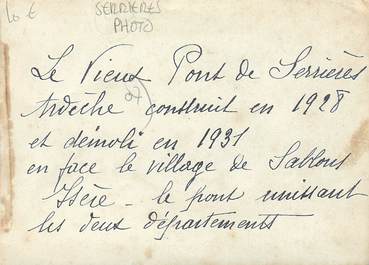 10 €
SERRIERES
PHOTO
Le Vieux Pont de Serrières
07
Ardèche construit en 1928
et démoli en 1931
en face le village de Sablons
Isère - le pont unissant
les deux départements